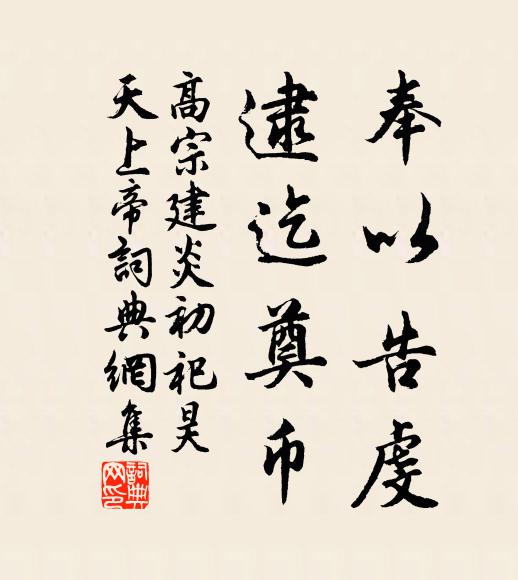 奉以告虔
逮迄奠币
高宗建炎初祀昊
天上帝詞典網集
詞典网印